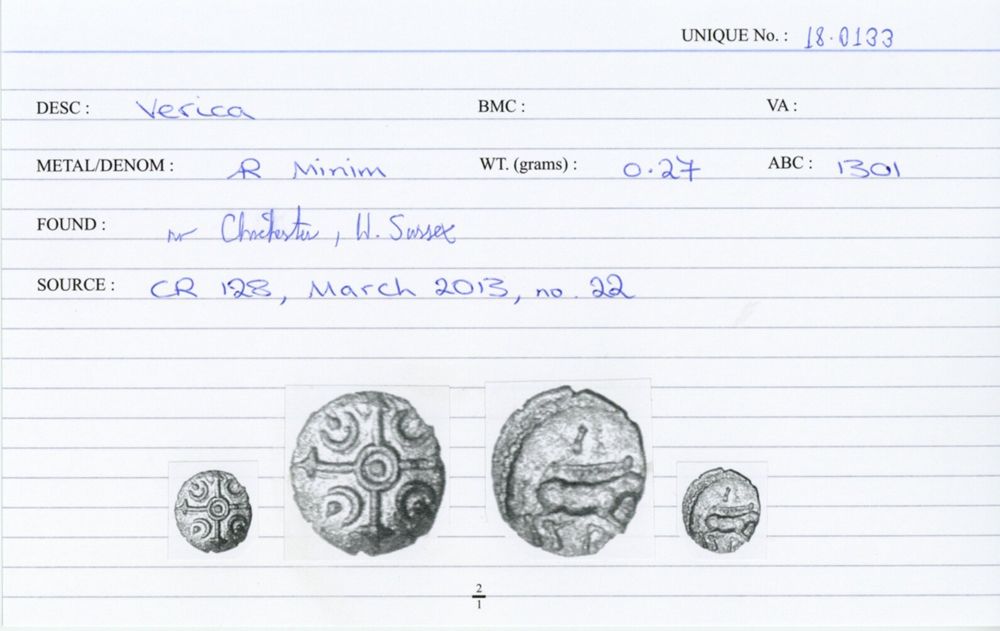 UNIQUE No. : 18.0133
DESC : Verica BMC : VA :
METAL/DENOM : AR Minim WT. (grams) : 0.27 ABC : 1301
FOUND : nr Chichester, W. Sussex
SOURCE : CR 128, March 2013, no. 22
2
1